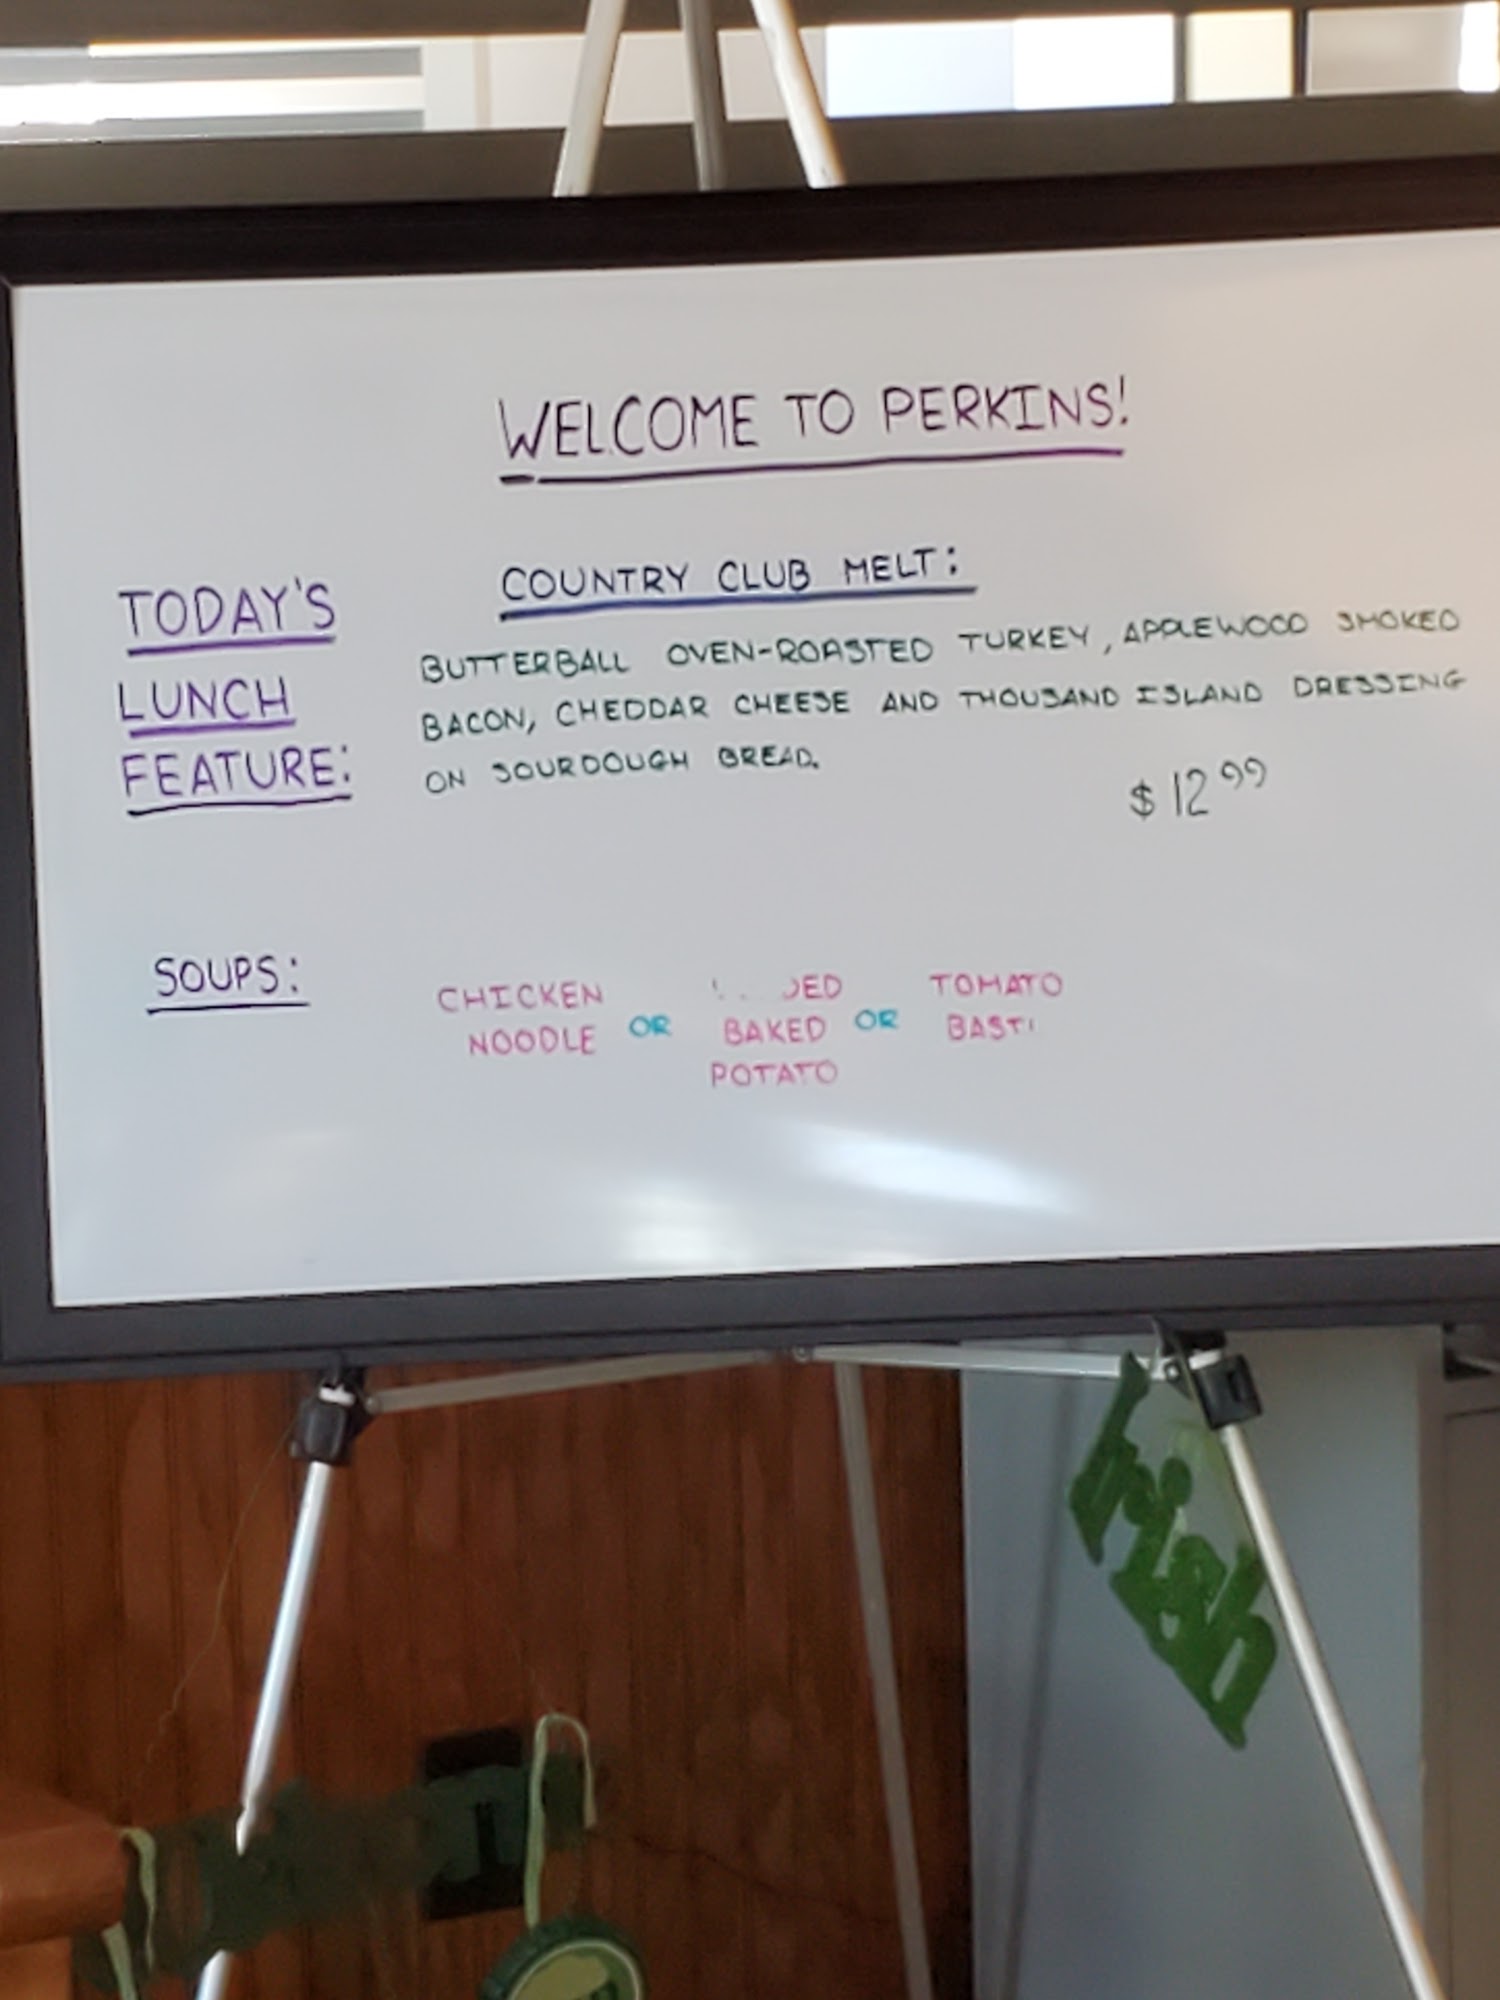 WELCOME TO PERKINS!
TODAY'S
LUNCH
FEATURE:
COUNTRY CLUB MELT:
BUTTERBALL OVEN-ROASTED TURKEY, APPLEWOOD SMOKED
BACON, CHEDDAR CHEESE AND THOUSAND ISLAND DRESSING
ON SOURDOUGH BREAD.
$12 99
SOUPS:
CHICKEN
NOODLE
OR
BAKED
POTATO
OR
TOMATO